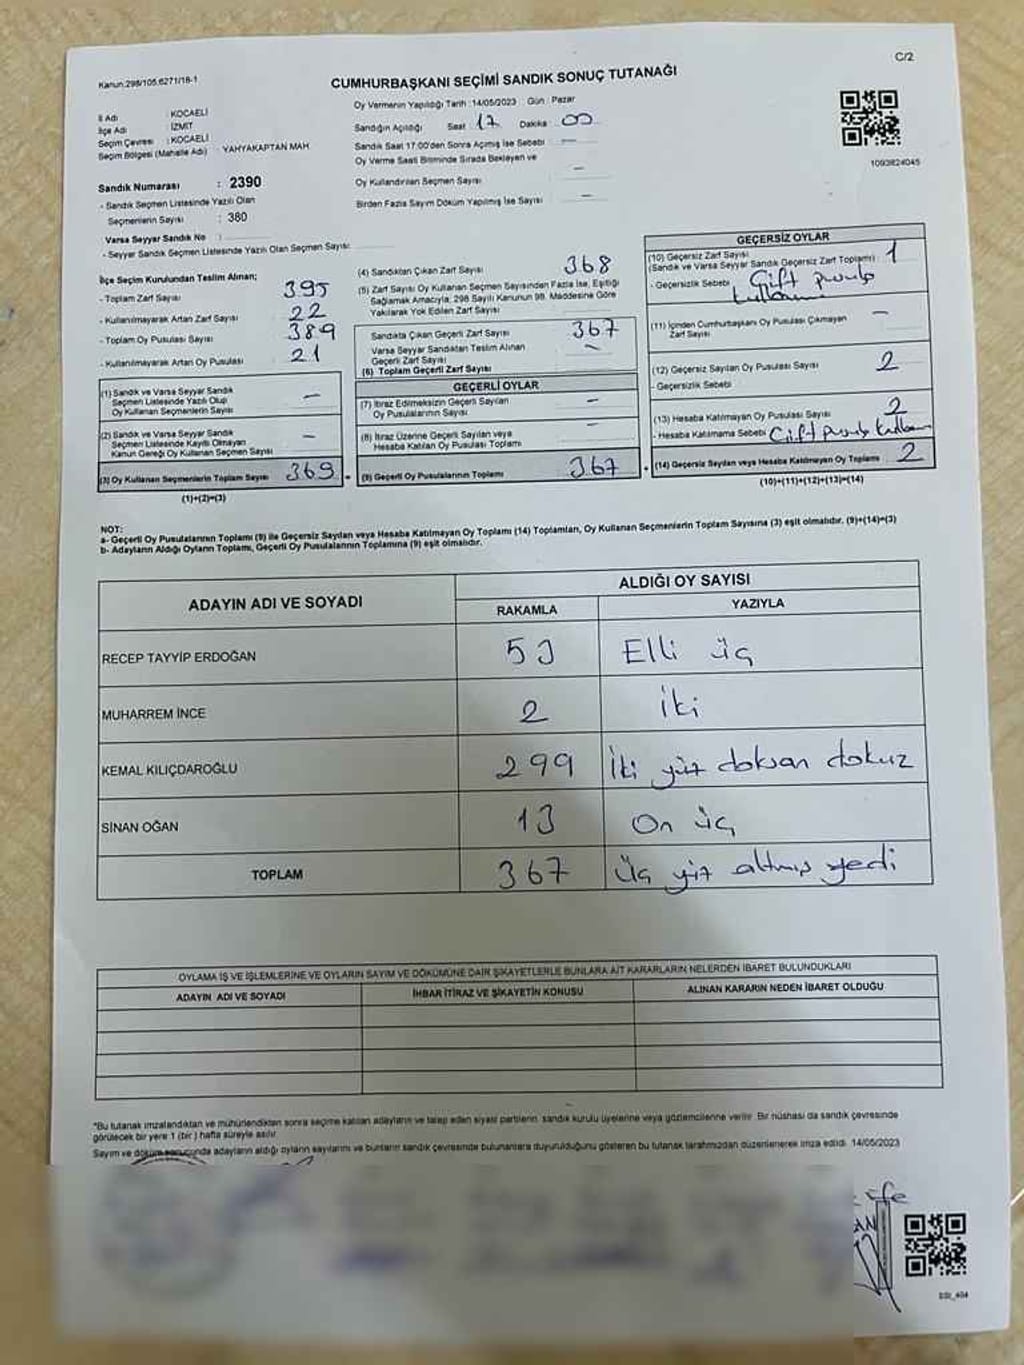 Kanun:298/105.6271/18-1
C/2
CUMHURBAŞKANI SEÇİMİ SANDIK SONUÇ TUTANAĞI
İl Adı : KOCAELİ
İlçe Adı : İZMİT
Seçim Çevresi : KOCAELİ
Seçim Bölgesi (Mahalle Adı) : YAHYAKAPTAN MAH
Sandık Numarası : 2390
- Sandık Seçmen Listesinde Yazılı Olan
Seçmenlerin Sayısı : 380
Varsa Seyyar Sandık No :
- Seyyar Sandık Seçmen Listesinde Yazılı Olan Seçmen Sayısı:
Oy Vermenin Yapıldığı Tarih :14/05/2023 Gün : Pazar
Sandığın Açıldığı Saat 17 Dakika 00
Sandık Saat 17:00'den Sonra Açımış İse Sebebi : —
Oy Verme Saati Bitiminde Sırada Bekleyen ve
Oy Kullandırılan Seçmen Sayısı : —
Birden Fazla Sayım Döküm Yapılmış İse Sayısı : —
1093824045
İlçe Seçim Kurulundan Teslim Alınan;
- Toplam Zarf Sayısı : 395
- Kullanılmayarak Artan Zarf Sayısı : 22
- Toplam Oy Pusulası Sayısı : 389
- Kullanılmayarak Artan Oy Pusulası : 21
(1) Sandık ve Varsa Seyyar Sandık
Seçmen Listesinde Yazılı Olup
Oy Kullanan Seçmenlerin Sayısı —
(2) Sandık ve Varsa Seyyar Sandık
Seçmen Listesinde Kayıtlı Olmayan
Kanun Gereği Oy Kullanan Seçmen Sayısı —
(3) Oy Kullanan Seçmenlerin Toplam Sayısı 369
(1)+(2)=(3)
(4) Sandıktan Çıkan Zarf Sayısı 368
(5) Zarf Sayısı Oy Kullanan Seçmen Sayısından Fazla İse, Eşitliği
Sağlamak Amacıyla, 298 Sayılı Kanunun 98. Maddesine Göre
Yakılarak Yok Edilen Zarf Sayısı :
Sandıkta Çıkan Geçerli Zarf Sayısı 367
Varsa Seyyar Sandıktan Teslim Alınan
Geçerli Zarf Sayısı —
(6) Toplam Geçerli Zarf Sayısı
GEÇERLİ OYLAR
(7) İtiraz Edilmeksizin Geçerli Sayılan
Oy Pusulalarının Sayısı —
(8) İtiraz Üzerine Geçerli Sayılan veya
Hesaba Katılan Oy Pusulası Toplamı —
(9) Geçerli Oy Pusulalarının Toplamı 367
GEÇERSİZ OYLAR
(10) Geçersiz Zarf Sayısı
(Sandık ve Varsa Seyyar Sandık Geçersiz Zarf Toplamı) 1
- Geçersizlik Sebebi Çift pusula
kullanma
(11) İçinden Cumhurbaşkanı Oy Pusulası Çıkmayan
Zarf Sayısı —
(12) Geçersiz Sayılan Oy Pusulası Sayısı 2
- Geçersizlik Sebebi
(13) Hesaba Katılmayan Oy Pusulası Sayısı 2
- Hesaba Katılmama Sebebi Çift pusula
(14) Geçersiz Sayılan veya Hesaba Katılmayan Oy Toplamı 2
(10)+(11)+(12)+(13)=(14)
NOT:
a- Geçerli Oy Pusulalarının Toplamı (9) ile Geçersiz Sayılan veya Hesaba Katılmayan Oy Toplamı (14) Toplamları, Oy Kullanan Seçmenlerin Toplam Sayısına (3) eşit olmalıdır. (9)+(14)=(3)
b- Adayların Aldığı Oyların Toplamı, Geçerli Oy Pusulalarının Toplamına (9) eşit olmalıdır.
ADAYIN ADI VE SOYADI
ALDIĞI OY SAYISI
RAKAMLA YAZIYLA
RECEP TAYYİP ERDOĞAN 53 Elli üç
MUHARREM İNCE 2 İki
KEMAL KILIÇDAROĞLU 299 İki yüz doksan dokuz
SİNAN OĞAN 13 On üç
TOPLAM 367 Üç yüz altmış yedi
OYLAMA İŞ VE İŞLEMLERİNE VE OYLARIN SAYIM VE DÖKÜMÜNE DAİR ŞİKAYETLERLE BUNLARA AİT KARARLARIN NELERDEN İBARET BULUNDUKLARI
ADAYIN ADI VE SOYADI İHBAR İTİRAZ VE ŞİKAYETİN KONUSU ALINAN KARARIN NEDEN İBARET OLDUĞU
*Bu tutanak imzalandıktan ve mühürlendikten sonra seçime katılan adayların ve talep eden siyasi partilerin, sandık kurulu üyelerine veya gözlemcilerine verilir. Bir nüshası da sandık çevresinde
görülecek bir yere 1 (bir) hafta süreyle asılır.
Sayım ve döküm sonucunda adayların aldığı oyların sayılarını ve bunların sandık çevresinde bulunanlara duyurulduğunu gösteren bu tutanak tarafımızdan düzenlenerek imza edildi. 14/05/2023